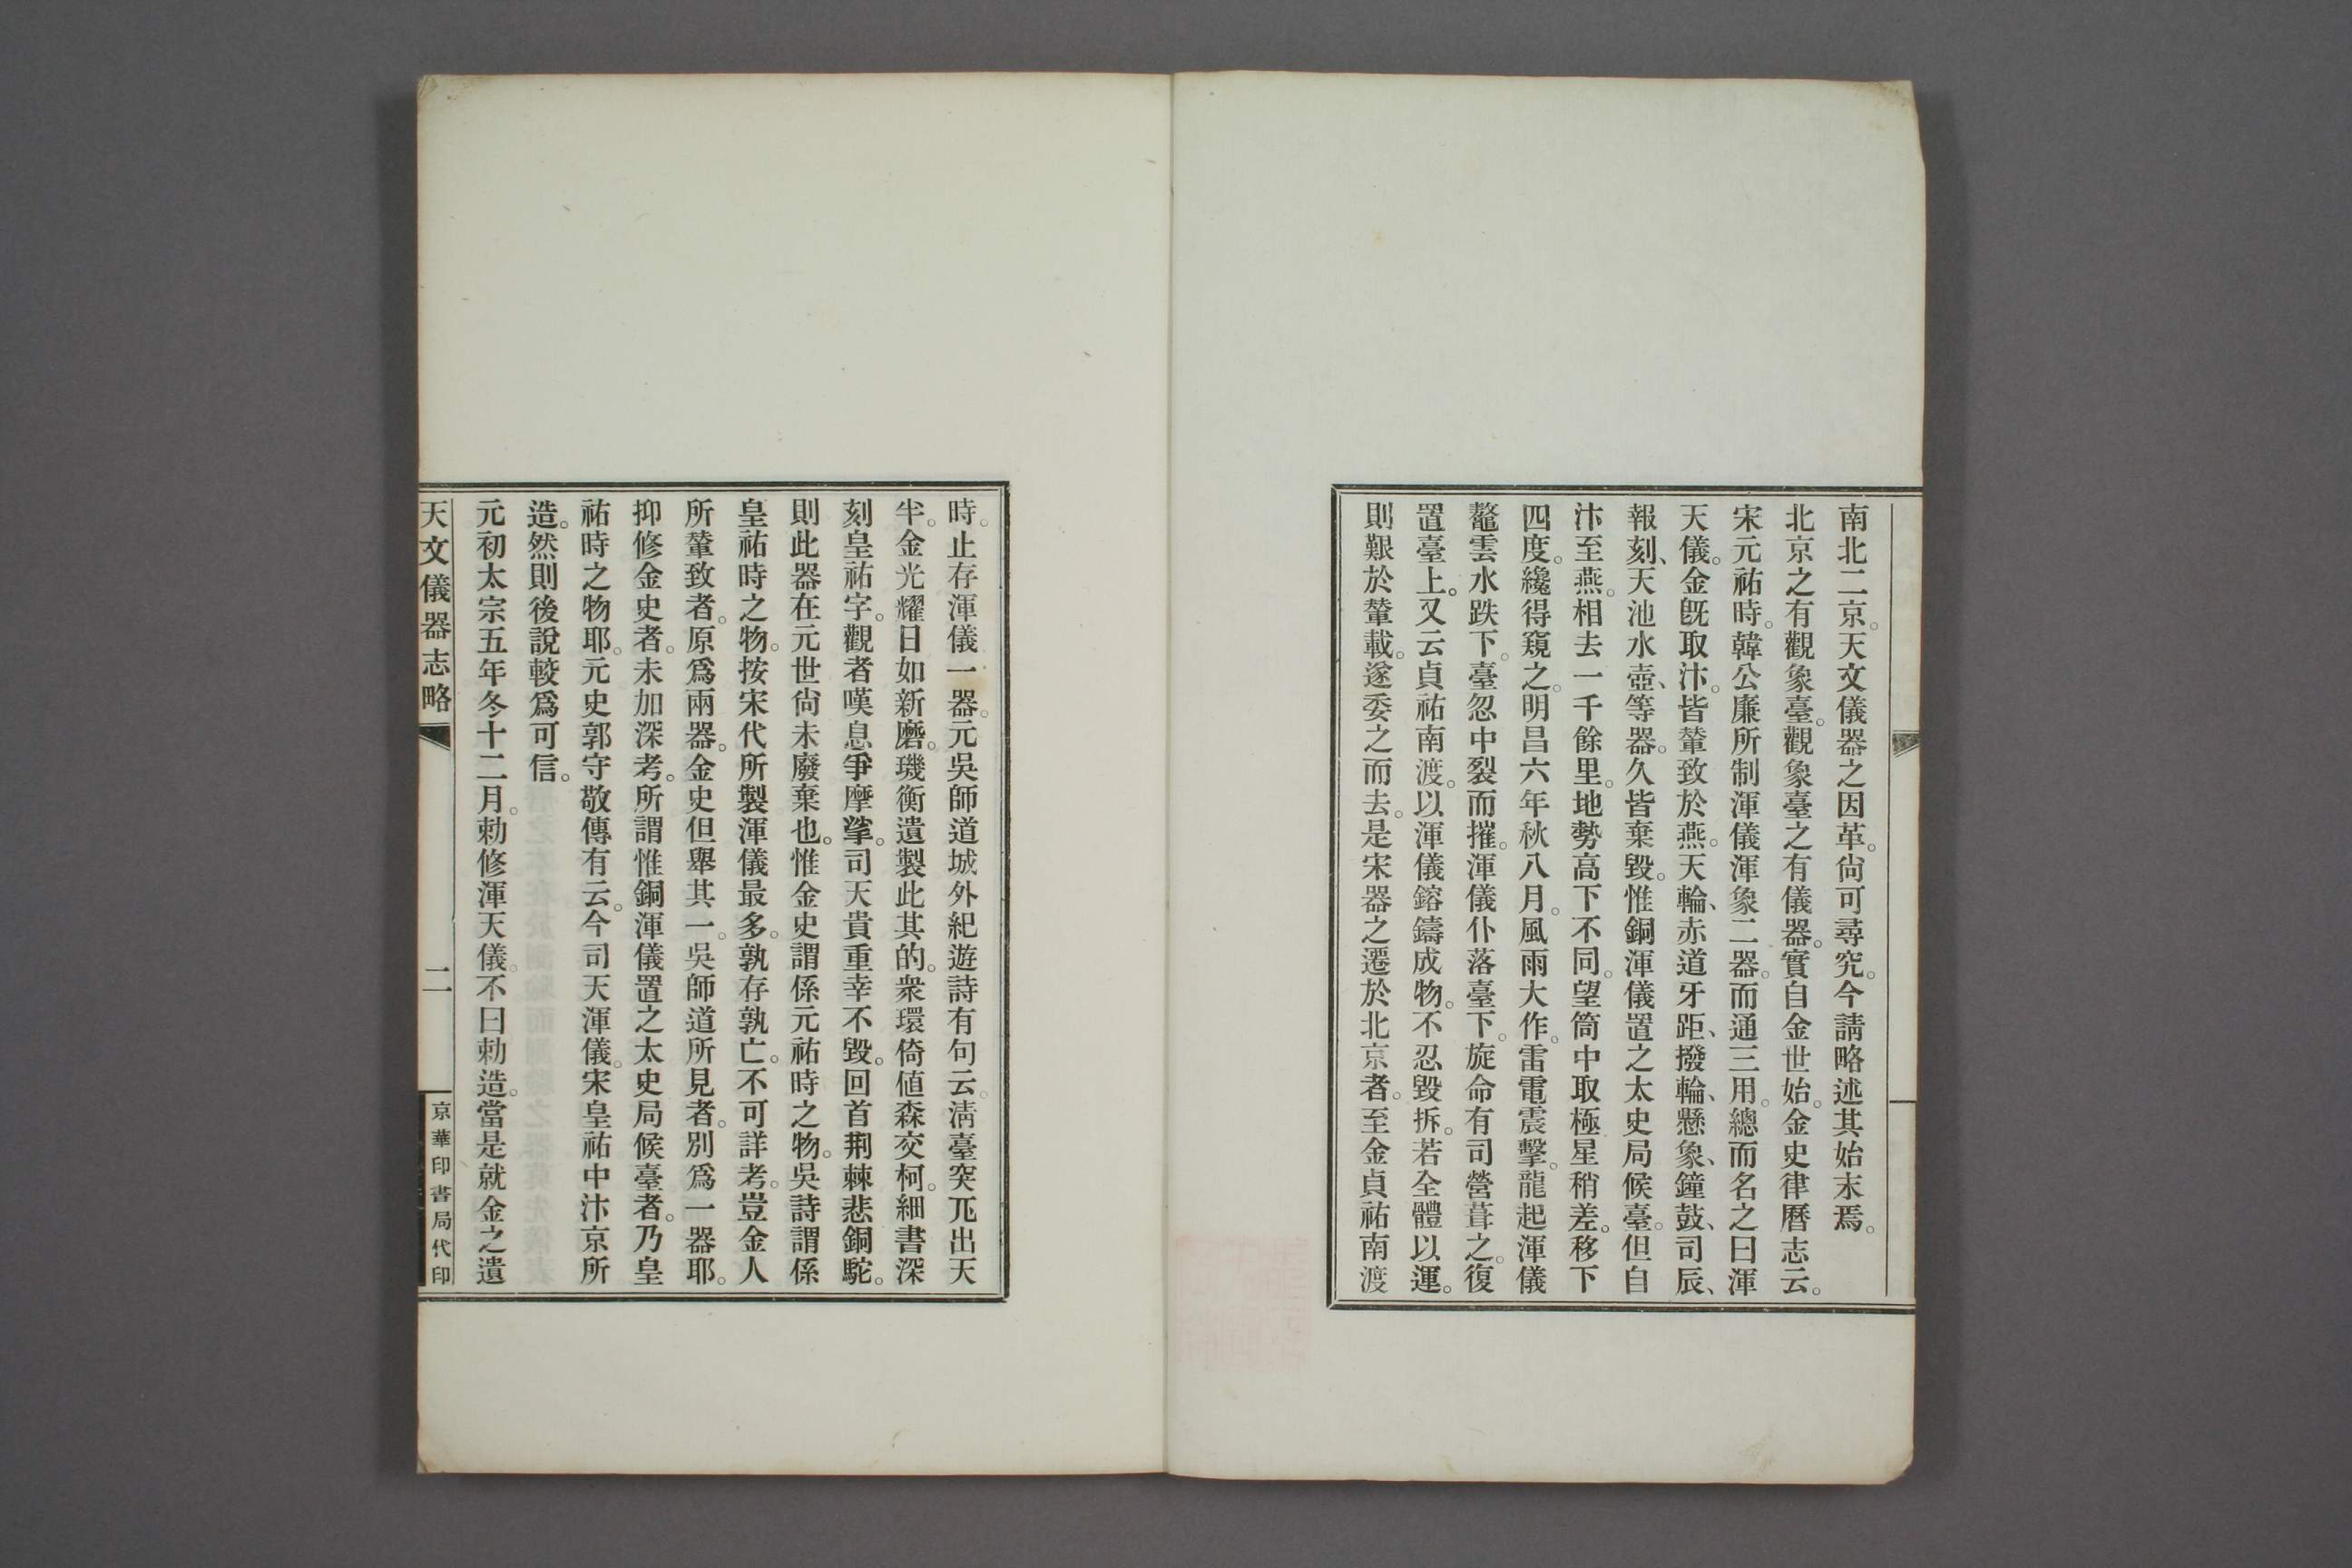 南北二京。天文儀器之因革。尙可尋究。今請略述其始末焉。
北京之有觀象臺。觀象臺之有儀器。實自金世始。金史律曆志云。
宋元祐時。韓公廉所制渾儀渾象二器。而通三用。總而名之曰渾
天儀。金旣取汴。皆輦致於燕。天輪、赤道牙距、撥輪、懸象、鐘鼓、司辰、
報刻、天池水壺、等器。久皆棄毀。惟銅渾儀置之太史局候臺。但自
汴至燕。相去一千餘里。地勢高下不同。望筒中取極星稍差。移下
四度。纔得窺之。明昌六年秋八月。風雨大作。雷電震擊。龍起渾儀
鼇雲水趺下。臺忽中裂而摧。渾儀仆落臺下。旋命有司營葺之。復
置臺上。又云貞祐南渡。以渾儀鎔鑄成物。不忍毀拆。若全體以運。
則艱於輦載。遂委之而去。是宋器之遷於北京者。至金貞祐南渡
時。止存渾儀一器。元吳師道城外紀遊詩有句云。淸臺突兀出天
半。金光耀日如新磨。璣衡遺製此其的。衆環倚値森交柯。細書深
刻皇祐字。觀者嘆息爭摩挲。司天貴重幸不毀。回首荆棘悲銅駝。
則此器在元世尙未廢棄也。惟金史謂係元祐時之物。吳詩謂係
皇祐時之物。按宋代所製渾儀最多。孰存孰亡。不可詳考。豈金人
所輦致者。原爲兩器。金史但舉其一。吳師道所見者。別爲一器耶。
抑修金史者。未加深考。所謂惟銅渾儀置之太史局候臺者。乃皇
祐時之物耶。元史郭守敬傳有云。今司天渾儀。宋皇祐中汴京所
造。然則後說較爲可信。
元初太宗五年冬十二月。勅修渾天儀。不曰勅造。當是就金之遺
天文儀器志略
二
京華印書局代印